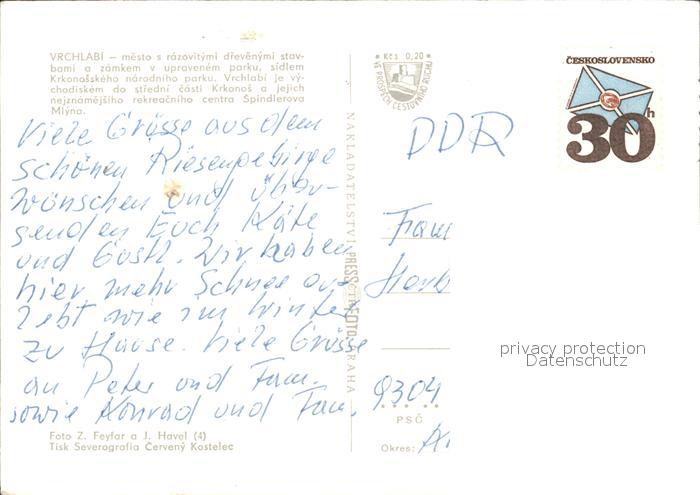 VRCHLABÍ — město s rázovitými dřevěnými stav-
bami a zámkem v upraveném parku, sídlem
Krkonošského národního parku. Vrchlabí je vý-
chodiskem do střední části Krkonoš a jejich
nejznámějšího rekreačního centra Špindlerova
Mlýna.
Viele Grüsse aus dem
schönen Riesengebirge
wünschen und über-
senden Euch Käte
und Gustl. Wir haben
hier mehr Schnee er-
lebt wie im Winter
zu Hause. Viele Grüsse
an Peter und Fam.
sowie Konrad und Fam.
Foto Z. Feyfar a J. Havel (4)
Tisk Severografia Červený Kostelec
NAKLADATELSTVÍ PRESSFOTO PRAHA
* Kčs 0,20 *
VE PROSPĚCH CESTOVNÍHO RUCHU
ČESKOSLOVENSKO
30h
DDR
Fam
9304
PSČ
Okres:
privacy protection
Datenschutz